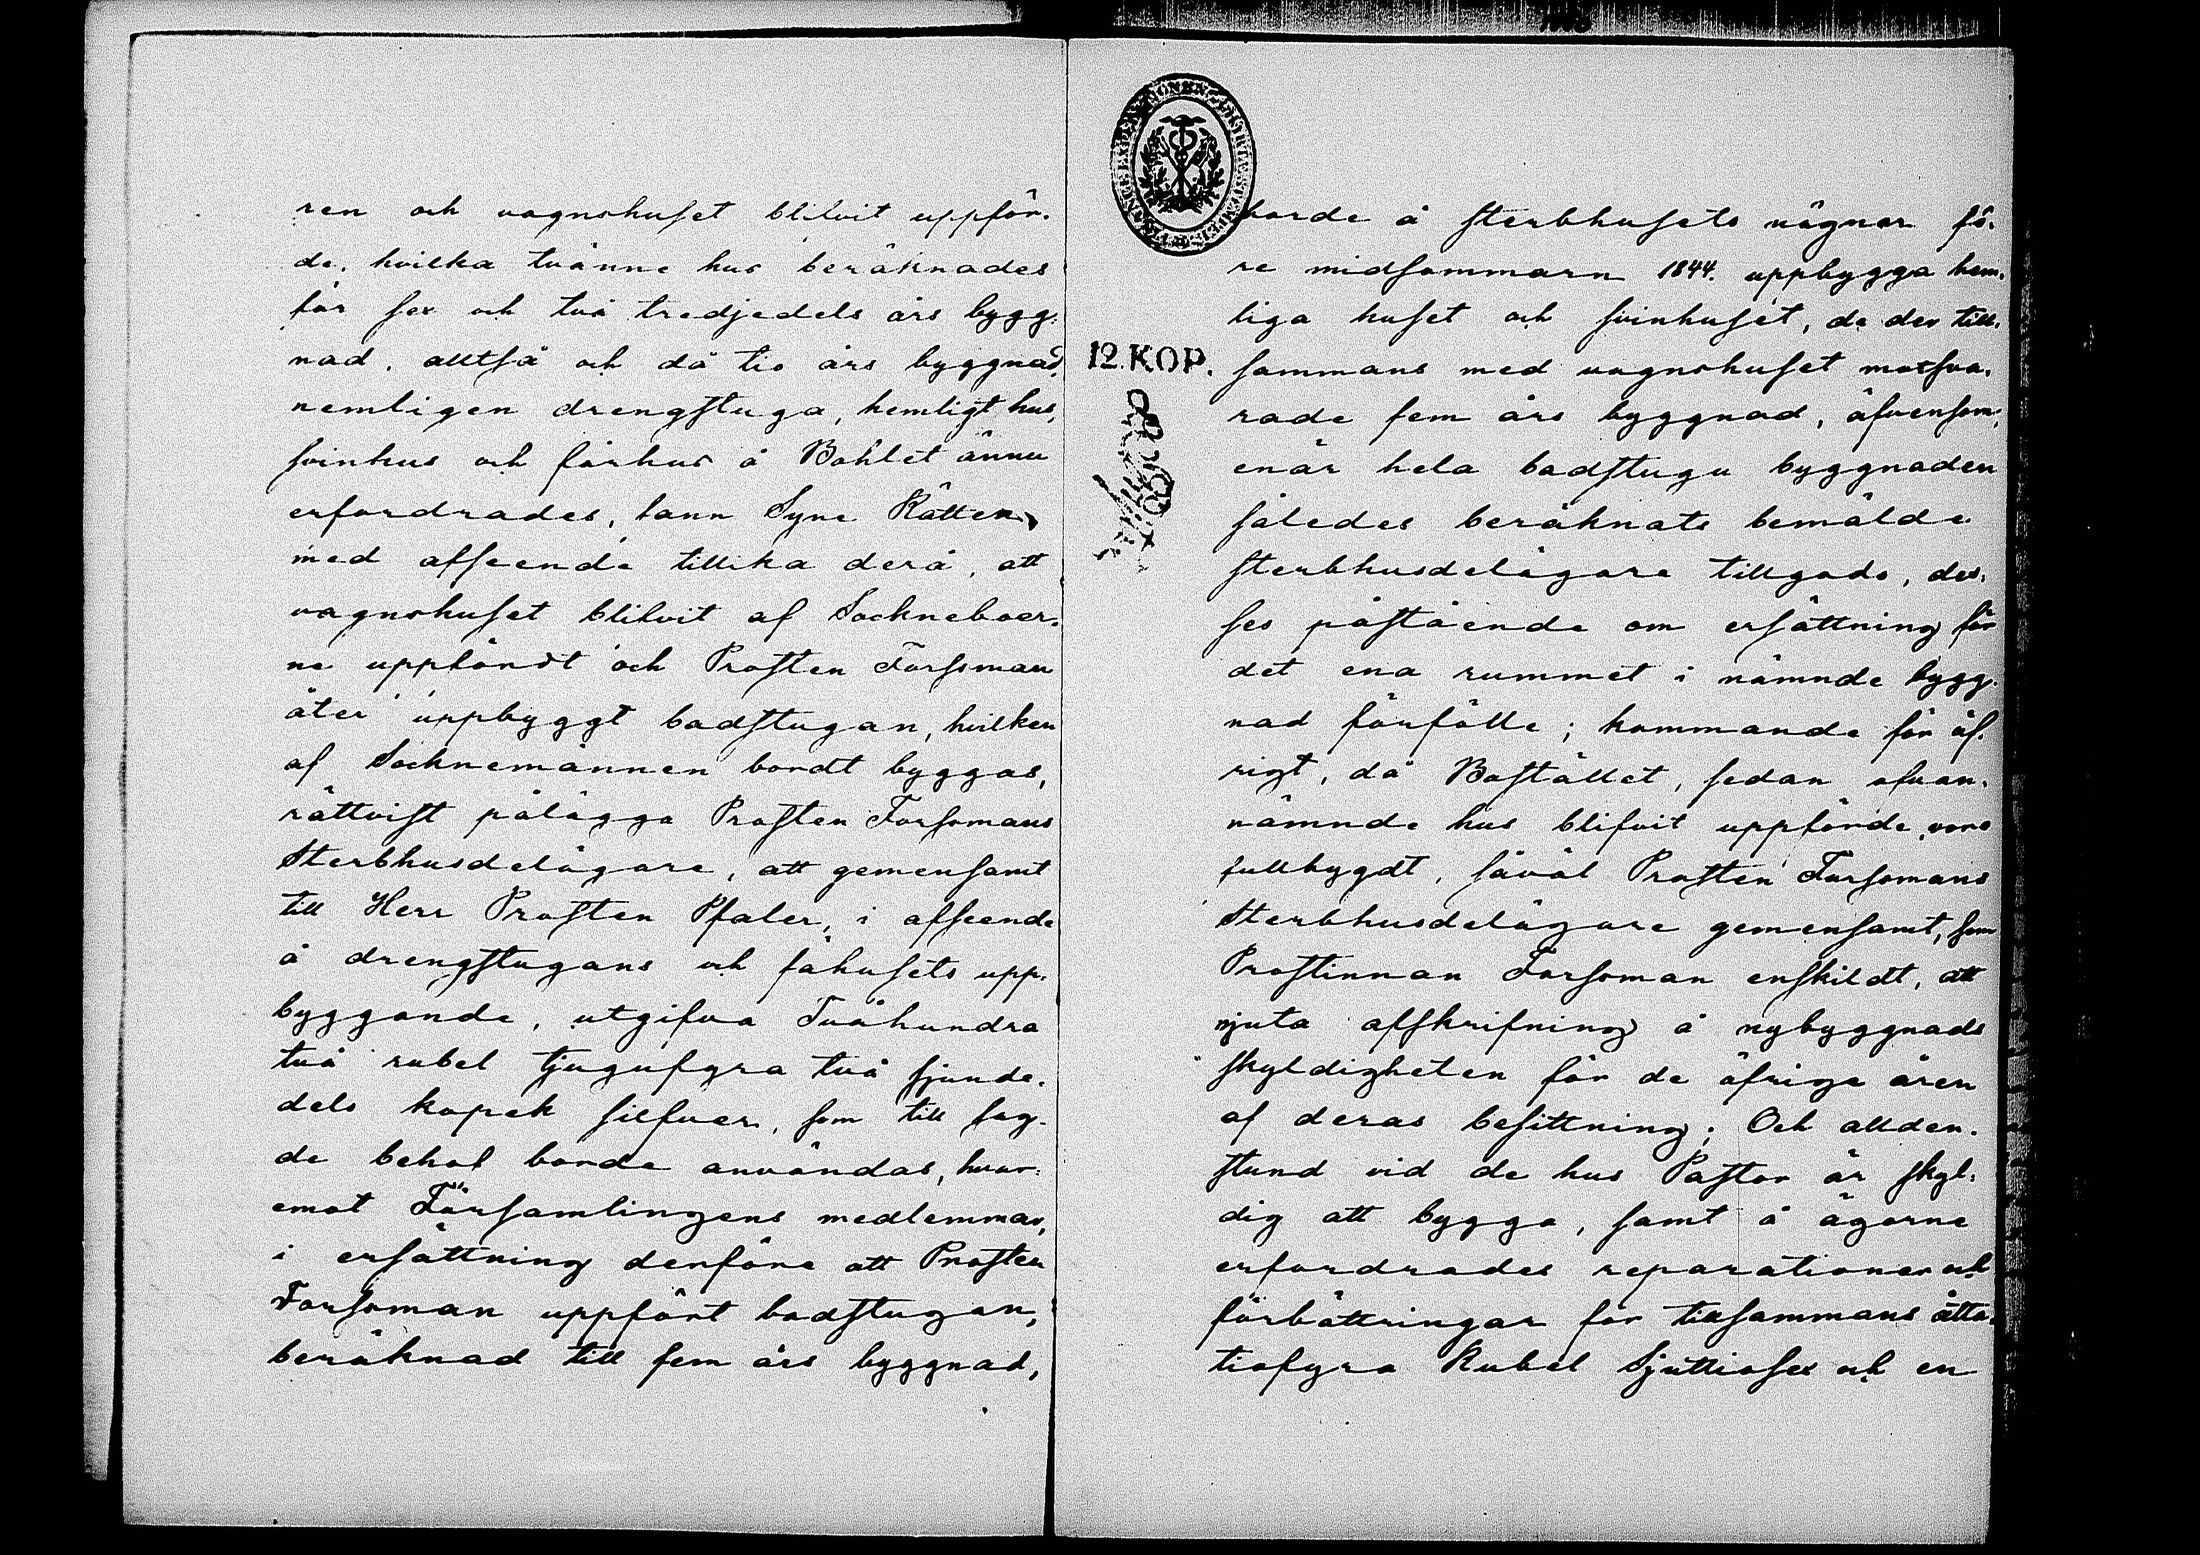 ren och vagnshuset blifvit uppför-
de, hvilka tvänne hus beräknades
för sex och två tredjedels års bygg-
nad, alltså och då tio års byggnad,
nemligen drengstuga, hemligt hus,
svinhus och fårhus å Bohlet ännu
erfordrades, fann Syne Rätten,
med afseende tillika derå, att
vagnshuset blifvit af Sockneboer-
ne uppfördt och Prosten Forssman
åter uppbyggt badstugan, hvilken
af Socknemännen bordt byggas,
rättvist pålägga Prosten Forssmans
Sterbhusdelägare, att gemensamt
till Herr Prosten Pfaler, i afseende
å drengstugans och fähusets upp-
byggande, utgifva Tvåhundra
två rubel tjugufyra två sjunde-
dels kopek silfver, som till sag-
de behof borde användas, hvar-
emot Församlingens medlemmar,
i ersättning derföre att Prosten
Forssman uppfört badstugan,
beräknad till fem års byggnad,
12. KOP.
borde å sterbhusets vägnar fö-
re midsommarn 1844. uppbygga hem-
liga huset och svinhuset, de der till-
sammans med vagnshuset motsva-
rade fem års byggnad, äfvensom,
enär hela badstugu byggnaden
således beräknats bemälde
sterbhusdelägare tillgodo, des-
ses påstående om ersättning för
det ena rummet i nämnde bygg-
nad förfölle; kommande för öf-
rigt, då Bostället, sedan ofvan-
nämnde hus blifvit uppförde, vore
fullbygdt, såväl Prosten Forssmans
Sterbhusdelägare gemensamt, som
Prostinnan Forssman enskildt, att
njuta afskrifning å nybyggnads
skyldigheten för de öfrige åren
af deras besittning; Och allden-
stund vid de hus Pastor är skyl-
dig att bygga, samt å ägorne
erfordrades reparationer och
förbättringar för tillsammans åtta-
tiofyra Rubel Sjuttiosex och en